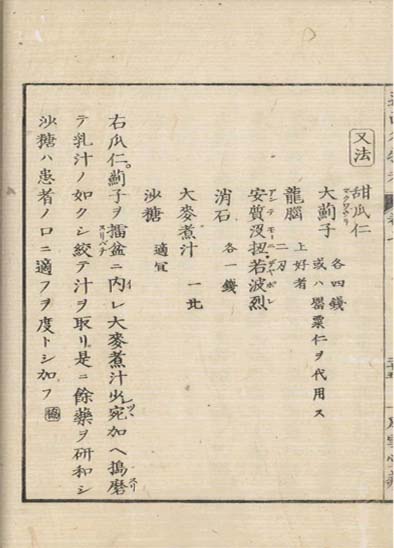 又法
甜瓜仁
マクワウリ
大薊子 各四錢 或ハ罌粟仁ヲ代用ス
龍腦 上好者
安質没扭若波烈
消石 各一錢
大麥煮汁
沙糖 適宜
右瓜仁薊子ヲ擂盆ニ内レ大麥煮汁少宛加ヘ搗磨
スリバチ イ ヅヽ スリ
テ乳汁ノ如クシ絞テ汁ヲ取リ是ニ餘藥ヲ研和シ
沙糖ハ患者ノ口ニ適フヲ度トシ加フ